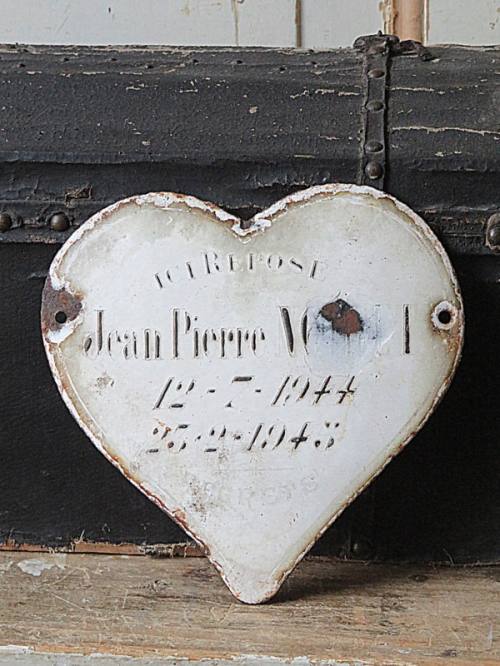 ICI REPOSE
Jean Pierre
12-7-1944
25-2-1945
REGRETS